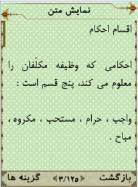 نمایش متن
اقسام احکام
احکامی که وظیفه مکلفان را
معلوم می کند، پنج قسم است :
واجب ، حرام ، مستحب ، مکروه ،
مباح .
گزینه ها ۳/۱۲۵ بازگشت